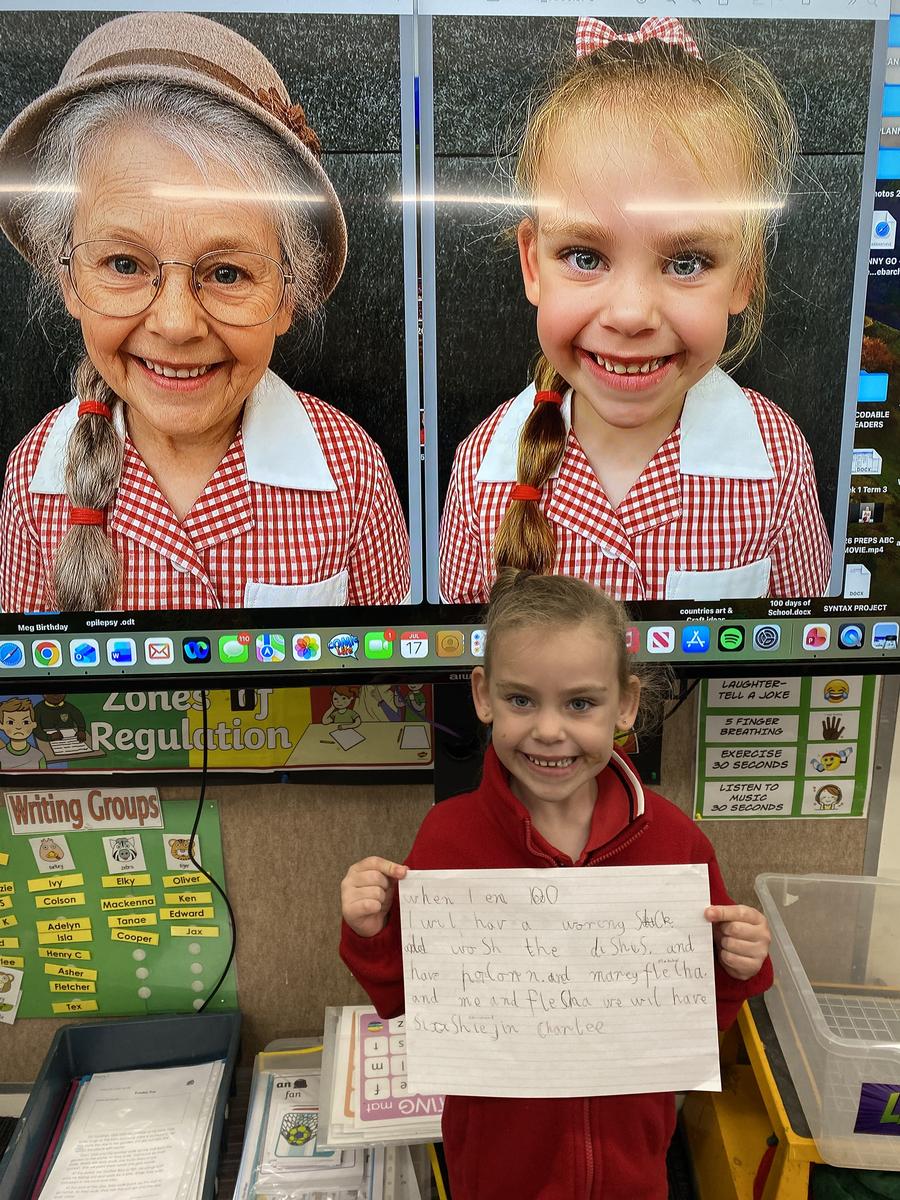 ANNY GO -
...ebarch
hotos 2
PLANN
CODABLE
EADERS
DOCX
k 1 Term 3
26 PREPS ABC
MOVIE.mp4
DOCX
Meg Birthday
epilepsy .odt
countries art &
Craft ideas
100 days of
School.docx
SYNTAX PROJECT
110
COMIC
LIFE
1
JUL
17
N
aiw
Zones of
Regulation
LAUGHTER-
TELL A JOKE
5 FINGER
BREATHING
EXERCISE
30 SECONDS
LISTEN TO
MUSIC
30 SECONDS
Writing Groups
turkey
zebra
tiger
zie
Ivy
Elky
Oliver
s
Colson
Mackenna
Ken
K
Adelyn
Tanae
Edward
Isla
Cooper
Jax
lee
Henry C
Asher
Fletcher
Tex
when I em 100
I wil hav a woking Stick
add wosh the dishes. and
have and marey flecha.
and me and flecha we wil have
Charlee
an
fan
z
t
l
m
f
TING mat